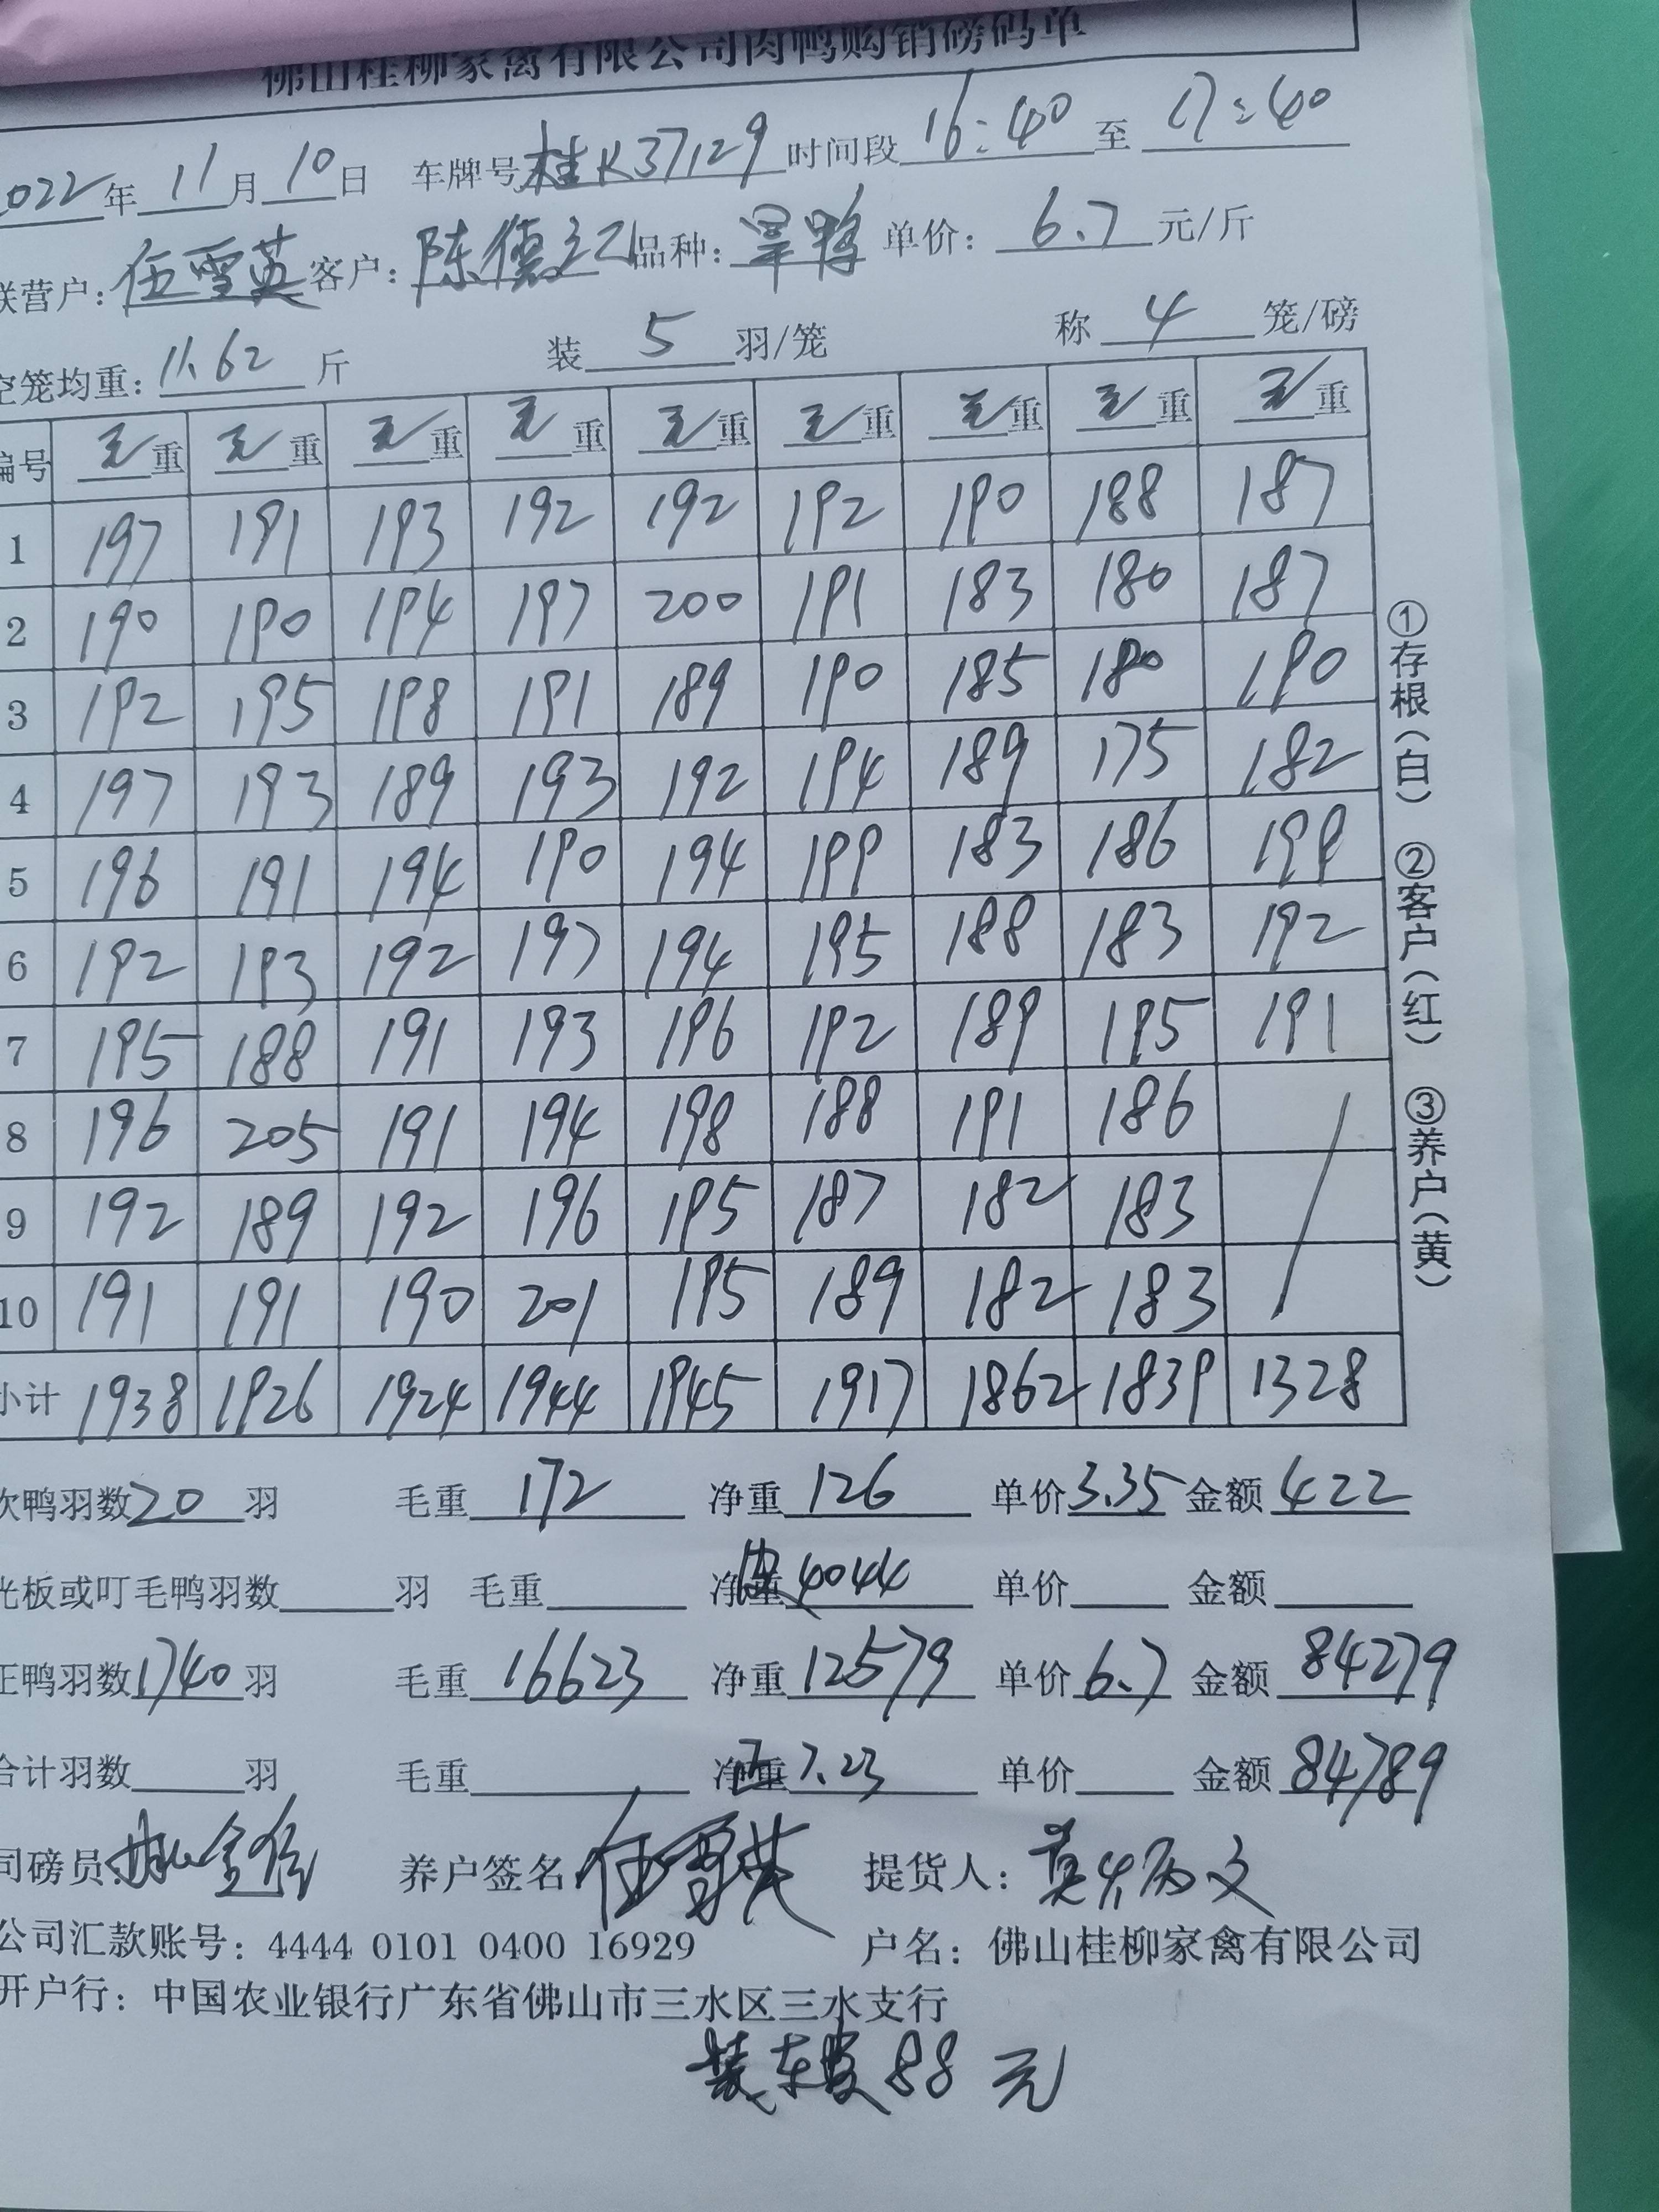 佛山桂柳家禽有限公司肉鸭购销磅码单
2022年 11月 10日 车牌号 桂K37129 时间段 16:40 至 17:40
联营户: 伍雪英 客户: 陈德 品种: 旱鸭 单价: 6.7 元/斤
空笼均重: 11.62 斤 装 5 羽/笼 称 4 笼/磅
编号 毛重 毛重 毛重 毛重 毛重 毛重 毛重 毛重 毛重
1 197 191 193 192 192 192 190 188 187
2 190 190 194 197 200 191 183 180 187
3 192 195 198 191 189 190 185 180 190
4 197 193 189 193 192 194 189 175 182
5 196 191 194 190 194 199 183 186 199
6 192 193 192 197 194 195 188 183 192
7 195 188 191 193 196 192 189 195 191
8 196 205 191 194 198 188 191 186
9 192 189 192 196 195 187 182 183
10 191 191 190 201 195 189 182 183
小计 1938 1926 1924 1944 1945 1917 1862 1839 1328
次鸭羽数 20 羽 毛重 172 净重 126 单价 3.35 金额 422
光板或叮毛鸭羽数 羽 毛重 净重 4044 单价 金额
正鸭羽数 1740 羽 毛重 16623 净重 12579 单价 6.7 金额 84279
合计羽数 羽 毛重 净重 7.23 单价 金额 84789
司磅员: 养户签名: 伍雪英 提货人:
公司汇款账号: 4444 0101 0400 16929 户名: 佛山桂柳家禽有限公司
开户行: 中国农业银行广东省佛山市三水区三水支行
装车费 88 元
①存根(白) ②客户(红) ③养户(黄)